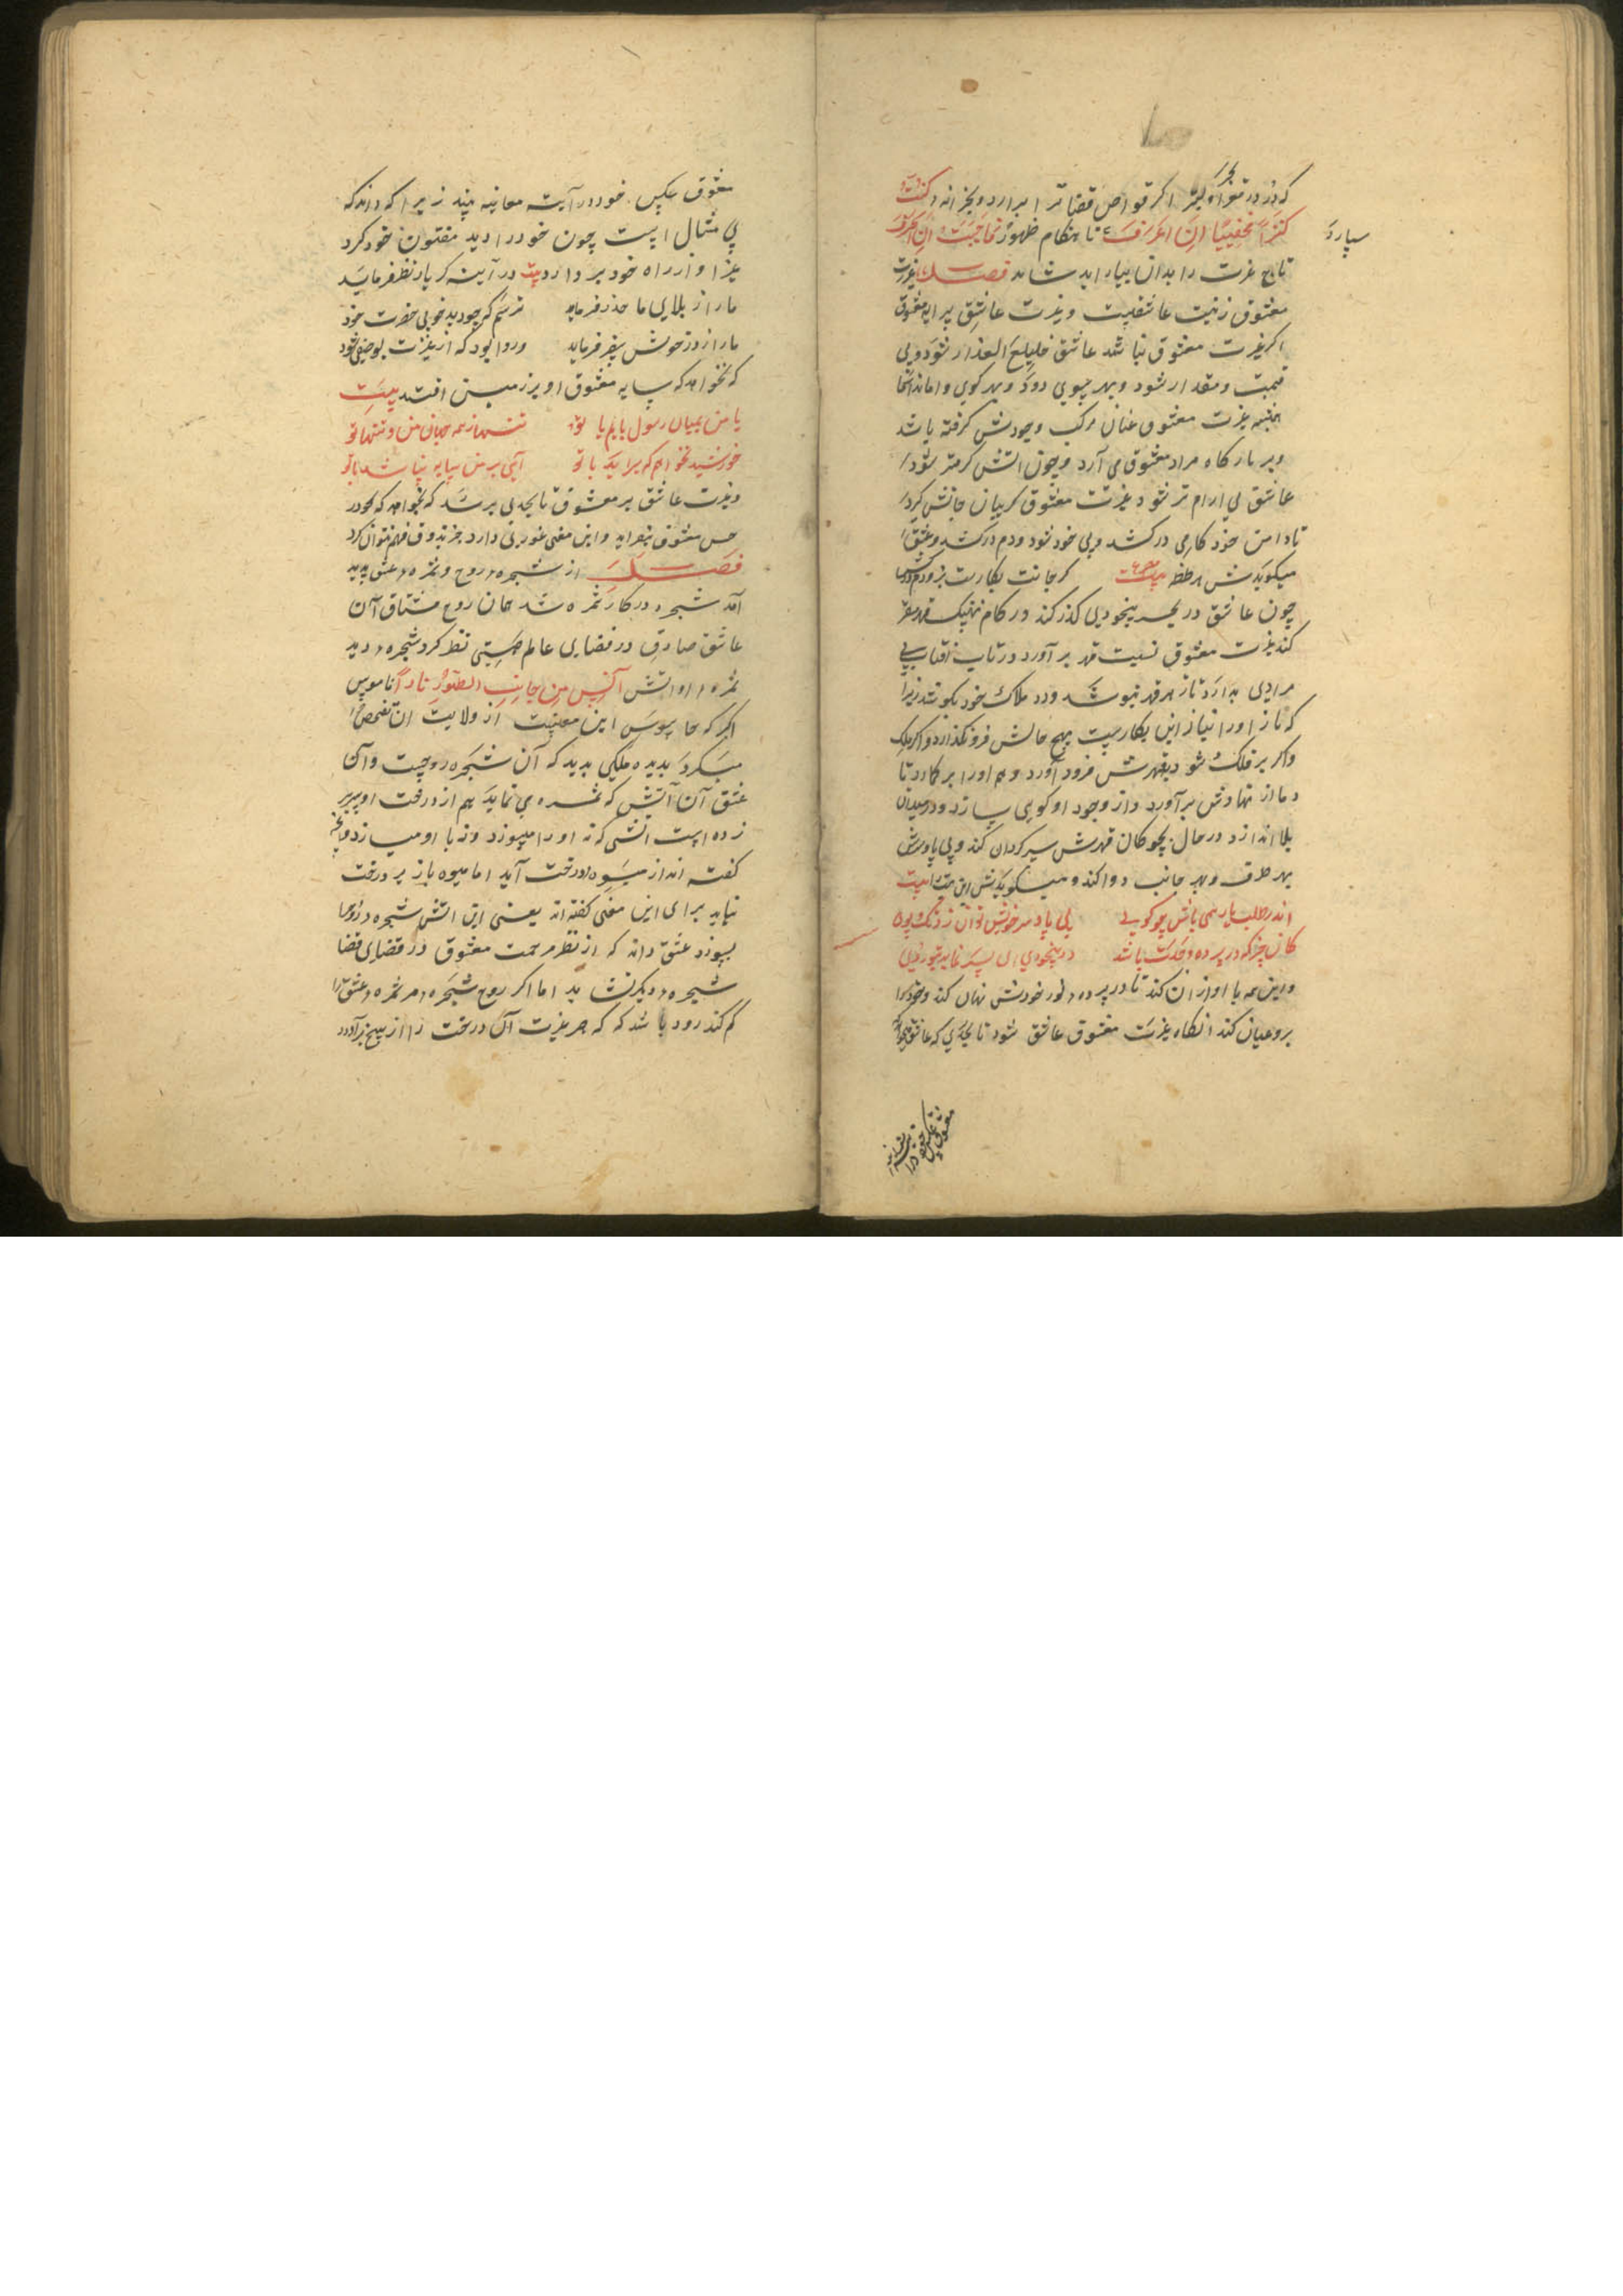 که در در قعر
کنزا مخفیا ان اعرف تا هنکام ظهور فاحببت ان اعرف
سپارد
تاج غیرت را بدان بیاراید شاید فصل غیرت
معشوق زینت عاشقیست و غیرت عاشق پیرایه معشوق
اکر غیرت معشوق نباشد عاشق خلیع العذار شود و بی
قیمت و مقدار شود و بهر سوی دود و بهر کوی و اماند اما
همه غیرت معشوق عنان مرکب وجودش کرفته باشد
و بر بارکاه مراد معشوق می آرد و چون اتش کرمتر شود
عاشق بی ارام تر شود غیرت معشوق کریبان جانش کیرد
تا دامن خود کارمی درکشد و بی خود شود و دم درکشد و عشق
میکویدش هر لحظه بیت کر جانت بکارست
چون عاشق در بحر بیخودی کذر کند در کام نهنک قهر مقر
کند غیرت معشوق نسیت قهر بر آورد در تاب افتاب بی
مرادی بدارد تا از هر قهر نپوشد ودر ملاک خود نکوشد زیرا
که ناز او را نیاز این بکارست بهیچ حالش فرونکذارد و اکر ملک
و اکر بر فلک شود بقهرش فرود آورد و هم او را بر کارد تا
دمار از نهادش برآورد و از وجود او کویی سازد و در میدان
بلا اندازد در حال بچوکان قهرش سرکردان کند و بی پا و سرش
بهر طرف و بهر جانب دوا کند و میکویدش این بیت
اندر طلب یار همی باش چو کویی بی پا و سر خویش توان زد تک و پوی
کان چیز که در پرده وحدت باشد در بیخودی ای پسر نماید بتو روی
و این همه با او از ان کند تا در پرده نور خودش نهان کند و خود را
برو عیان کند انکاه غیرت معشوق عاشق شود تا بحدی که عاشق نخواهد که
معشوق عکس خود در
معشوق عکس خود در آینه معاینه بیند زیرا که داند که
بی مثال است چون خود را دید مفتون خود کرد
عزا و از راه خود بر دارد بیت در آینه کر یار نظر فرماید
ما را ز بلای ما حذر فرماید ترسم که چو دید خوبی حضرت خود
ما را ز در خویش سفر فرماید و روا بود که از غیرت بوصفی شود
که نخواهد که سایه معشوق او بر زمین افتد بیت
با من بمیان رسول باید یا تو تنها ز همه جهان من و تنها تو
خورشید نخواهم که براید با تو آیی بر من سایه نباشد با تو
و غیرت عاشق بر معشوق تا بحدی برسد که نخواهد که خود در
حسن معشوق بنراید و این معنی غوری دارد جز بذوق فهم نتوان کرد
فصل از شجره روح و ثمره عشق پدید
آمد شجره در کار ثمره شد همان روح مشتاق آن
عاشق صادق در فضای عالم هستی نظر کرد شجره دید
ثمره او اتش آنس من جانب الطور نارا تا موسی
اکر که جاسوس این معنیست از ولایت ان تفحص
میکرد بدیده ملکی بدید که آن شجره روحیست و آن
عشق آن آتش که ثمره می نماید هم از درخت او سر بر
زده است اتشی که نه او را میسوزد و نه با او میسازد
کفته اند از میوه درخت آید اما میوه باز بر درخت
نیاید برای این معنی کفته اند یعنی این اتش شجره روح را
بسوزد عشق داند که از نظر مرحمت معشوق در فضای قضا
شجره دیکر نشاید اما اکر روح شجره مر ثمره عشق را
کم کند رود باشد که که صرصر غیرت آن درخت را از بیخ برآورد